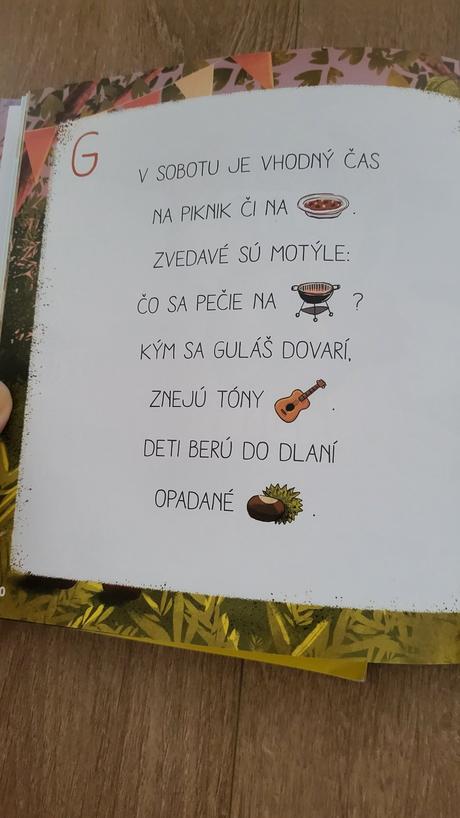 G
V SOBOTU JE VHODNÝ ČAS
NA PIKNIK ČI NA .
ZVEDAVÉ SÚ MOTÝLE:
ČO SA PEČIE NA ?
KÝM SA GULÁŠ DOVARÍ,
ZNEJÚ TÓNY .
DETI BERÚ DO DLANÍ
OPADANÉ .